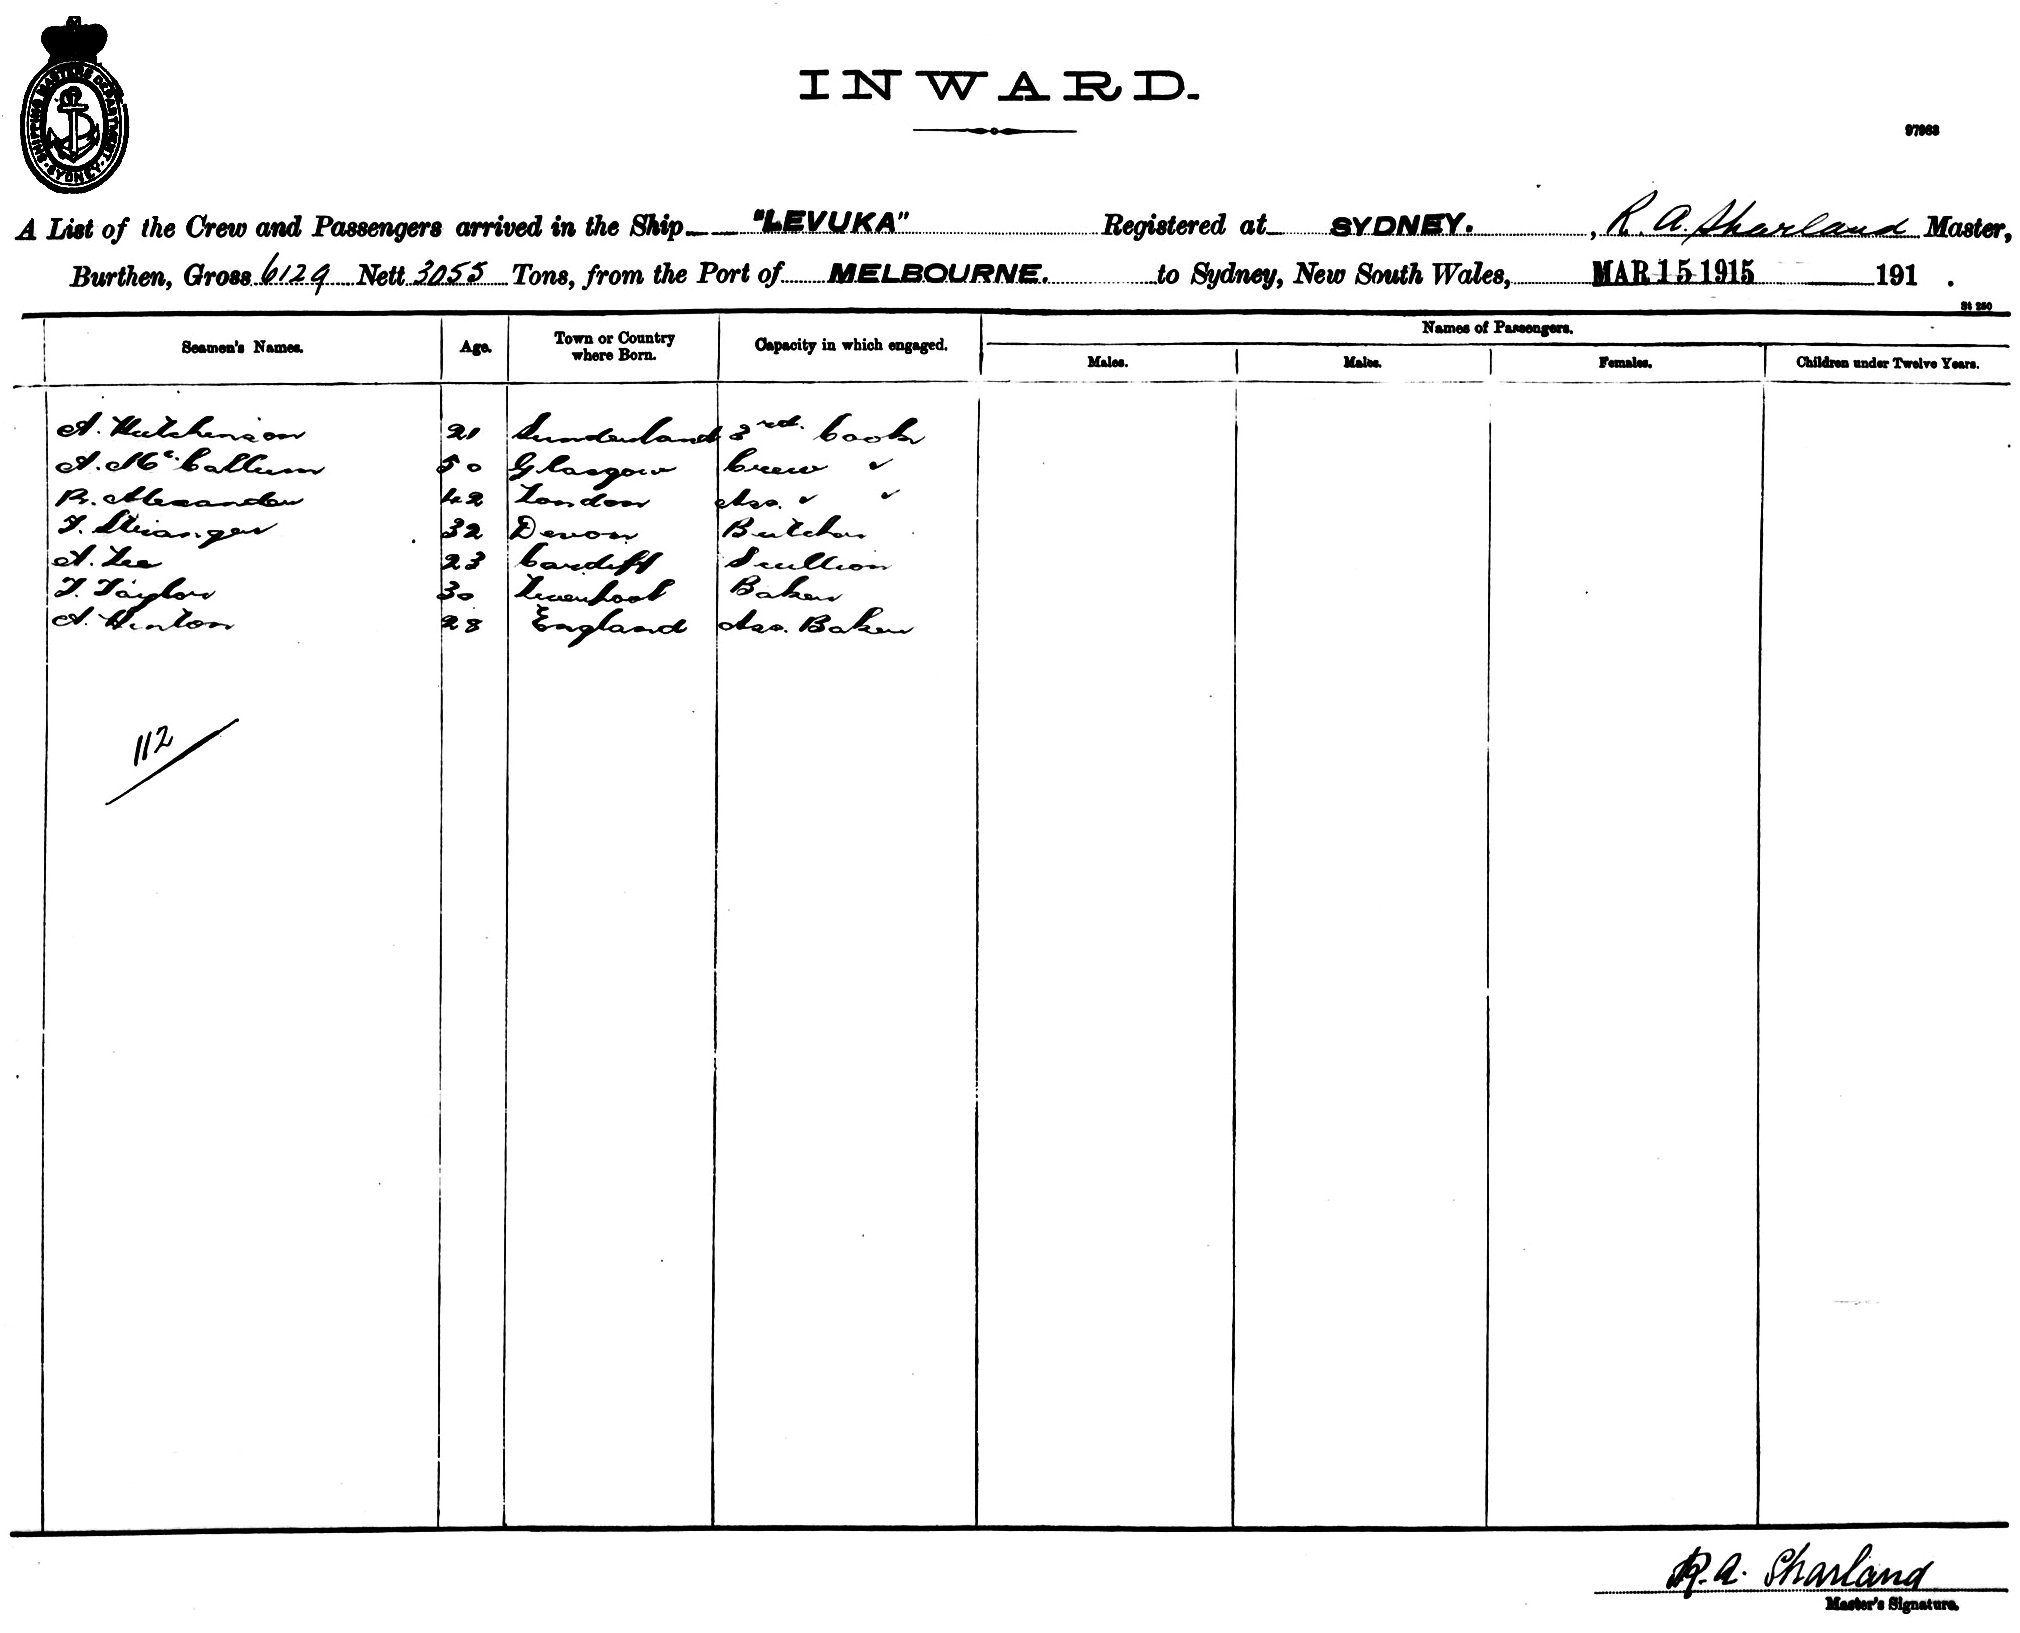 SHIPPING MASTERS DEPARTMENT
SYDNEY
INWARD.
97963
A List of the Crew and Passengers arrived in the Ship "LEVUKA" Registered at SYDNEY. , R. A. Sharland Master,
Burthen, Gross 6129 Nett 3055 Tons, from the Port of MELBOURNE. to Sydney, New South Wales, MAR 15 1915 191 .
St 280
Seamen's Names. Age. Town or Country where Born. Capacity in which engaged. Names of Passengers.
Males. Males. Females. Children under Twelve Years.
A. Hutchinson 21 Sunderland 3rd. Cook
A. Mc. Callum 50 Glasgow Crew "
R. Alexander 42 London Ass. " "
T. Stranger 32 Devon Butcher
A. Lee 23 Cardiff Scullion
T. Taylor 30 Liverpool Baker
A. Hinton 28 England Ass. Baker
112
R. A. Sharland
Master's Signature.